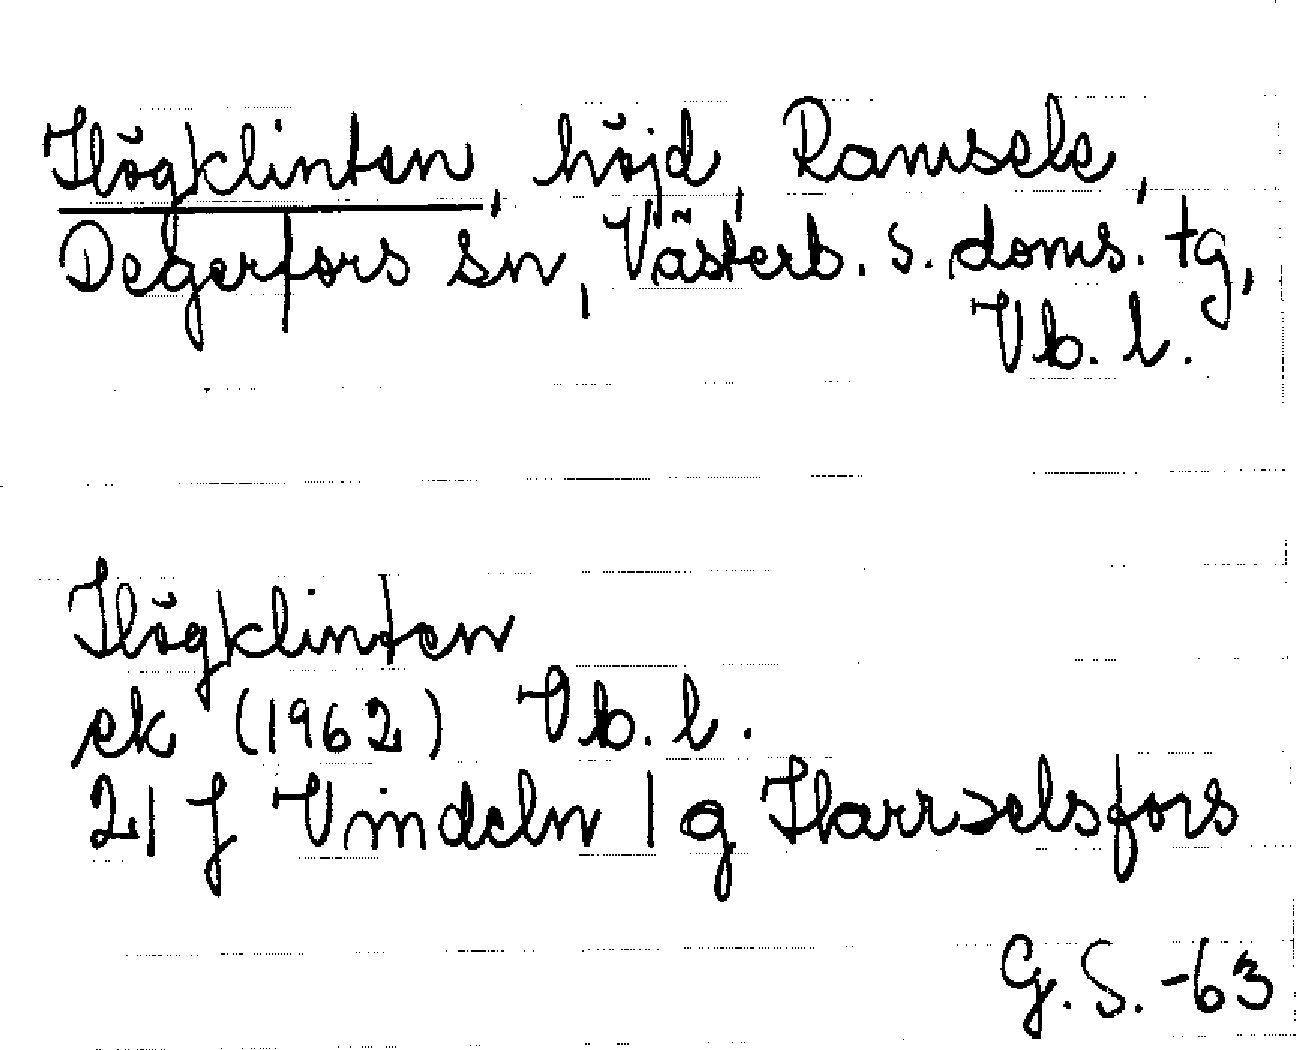 Högklinten, höjd, Ramsele,
Degerfors sn, Västerb. s. doms. tg,
Vb. l.
Högklinten
ek (1962) Vb. l.
21 J Vindeln 1 g Harrselsfors
G. S. -63